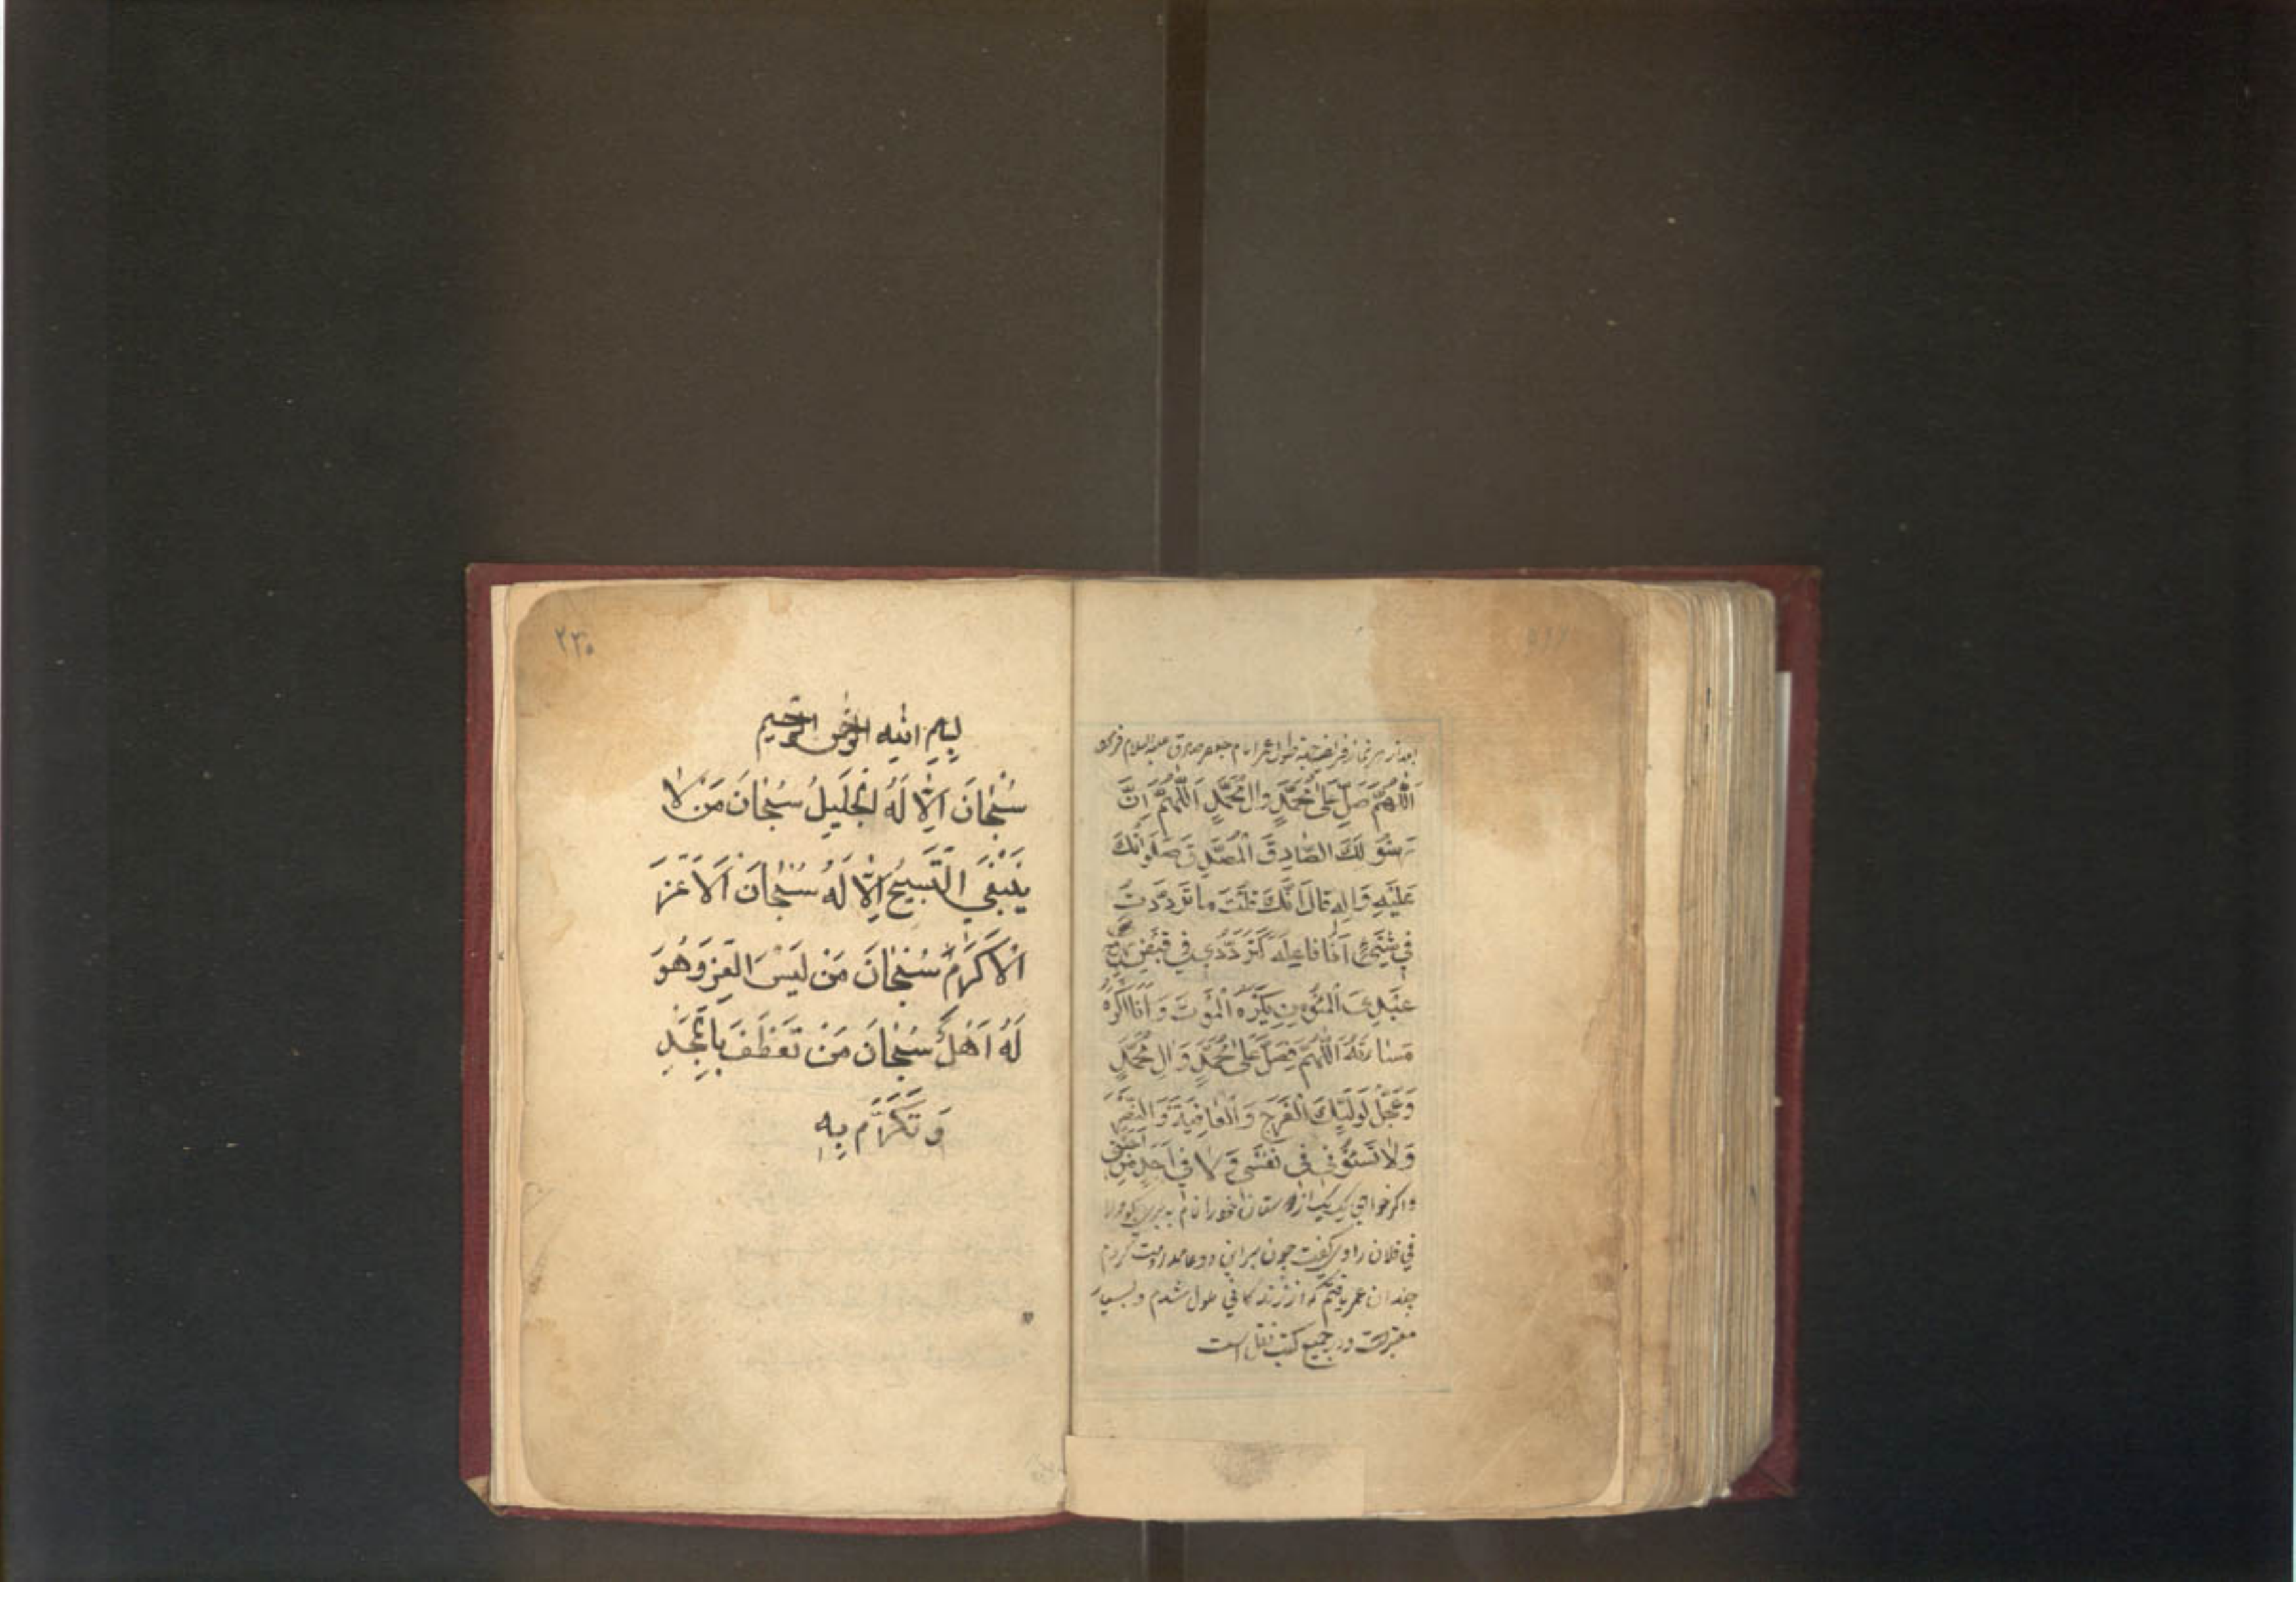 بعد از هر نماز فریضه جهة طول عمر امام جعفر صادق علیه السلام فرموده
اَللّٰهُمَّ صَلِّ عَلٰى مُحَمَّدٍ وَالِ مُحَمَّدٍ اَللّٰهُمَّ اِنَّ
رَسُولَكَ الصّٰادِقَ الْمُصَدَّقَ صَلَوٰاتُكَ
عَلَيْهِ وَاٰلِهِ قَالَ اِنَّكَ قُلْتَ مٰا تَرَدَّدْتُ
فِي شَيْءٍ اَنَا فَاعِلُهُ كَتَرَدُّدِي فِي قَبْضِ رُوحِ
عَبْدِيَ الْمُؤْمِنِ يَكْرَهُ الْمَوْتَ وَاَنَا اَكْرَهُ
مَسٰائَتَهُ اَللّٰهُمَّ فَصَلِّ عَلٰى مُحَمَّدٍ وَالِ مُحَمَّدٍ
وَعَجِّلْ لِوَلِيِّكَ الْفَرَجَ وَالْعٰافِيَةَ وَالنَّصْرَ
وَلاٰ تَسُؤْنِي فِي نَفْسِي وَلاٰ فِي اَحَدٍ مِنْ اَحِبَّتِي
و اگر خواهی یک یک از دوستان خود را نام ببری بگو ولا
في فلان راوی گفت چون بر این دعا مداومت کردم
چندان عمر یافتم که از زندگانی ملول شدم و بسیار
معتبر است و در جمیع کتب نقل است
٢٢٥
بِسْمِ اللهِ الرَّحْمٰنِ الرَّحِيمِ
سُبْحَانَ الْاِلٰهُ الْجَلِيلُ سُبْحَانَ مَنْ لاٰ
يَنْبَغِي التَّسْبِيحُ اِلّٰا لَهُ سُبْحَانَ الْاَعَزِّ
الْاَكْرَمُ سُبْحَانَ مَنْ لَبِسَ الْعِزَّ وَهُوَ
لَهُ اَهْلٌ سُبْحَانَ مَنْ تَعَطَّفَ بِالْمَجْدِ
وَ تَكَرَّمَ بِهِ